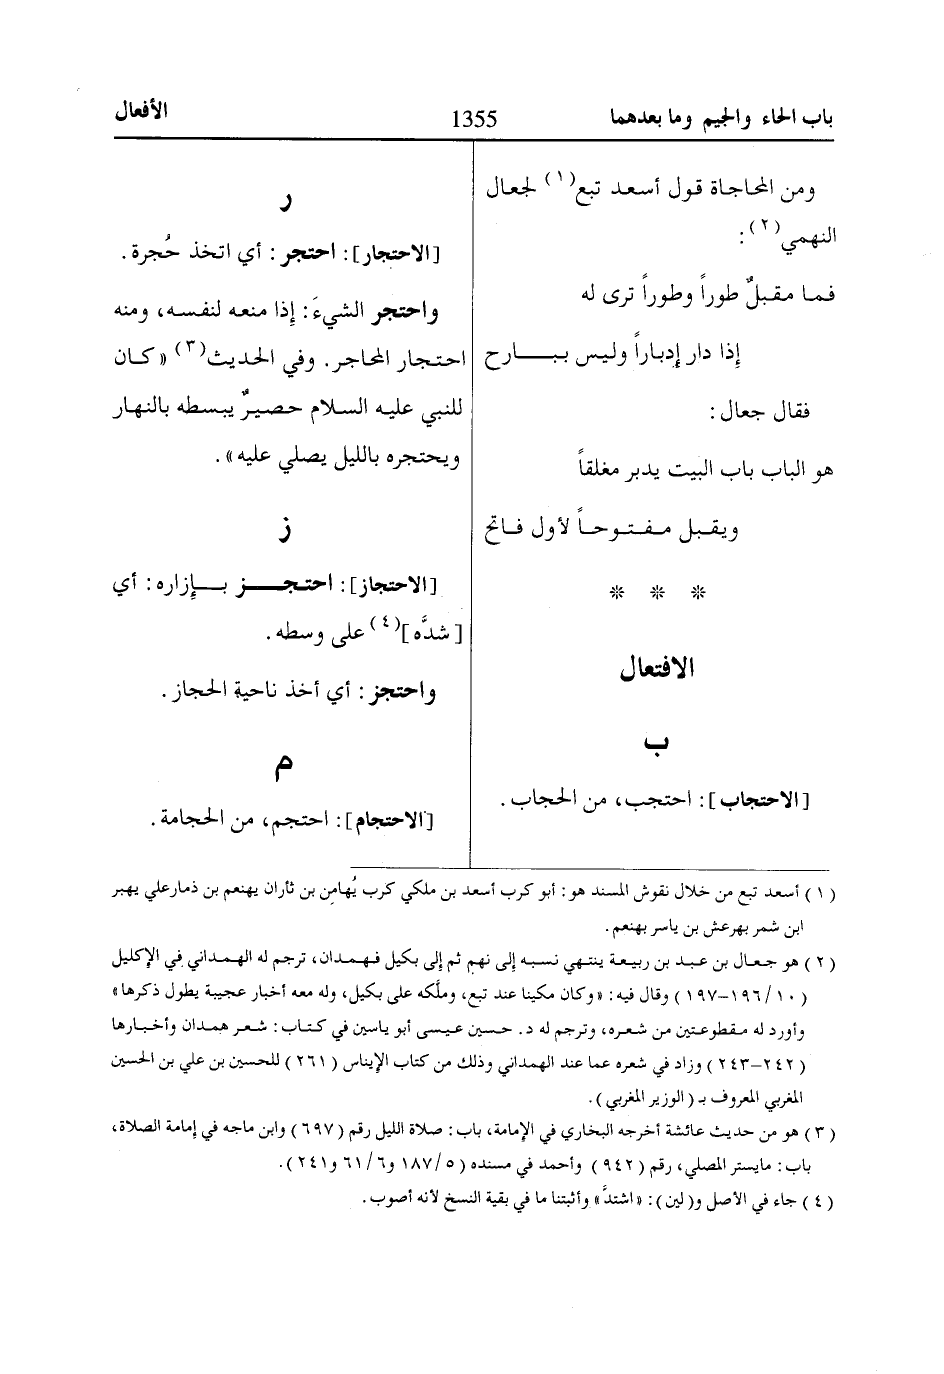 باب الحاء والجيم وما بعدهما 1355 الأفعال
ومن المحاجاة قول أسعد تبع(١) لجعال
النهمي(٢):
فما مقبلٌ طوراً وطوراً ترى له
إذا دار إدباراً وليس ببارح
فقال جعال:
هو الباب باب البيت يدبر مغلقاً
ويقبل مفتوحاً لأول فاتح
* * *
الافتعال
ب
[الاحتجاب]: احتجب، من الحجاب.
ر
[الاحتجار]: احتجر: أي اتخذ حُجرة.
واحتجر الشيءَ: إذا منعه لنفسه، ومنه
احتجار المحاجر. وفي الحديث(٣) «كان
للنبي عليه السلام حصيرٌ يبسطه بالنهار
ويحتجره بالليل يصلي عليه».
ز
[الاحتجاز]: احتجز بإزاره: أي
[شدَّه](٤) على وسطه.
واحتجز: أي أخذ ناحية الحجاز.
م
[الاحتجام]: احتجم، من الحجامة.
(١) أسعد تبع من خلال نقوش المسند هو: أبو كرب أسعد بن ملكي كرب يُهامن بن ثأران يهنعم بن ذمارعلي يهبر
ابن شمر يهرعش بن ياسر يهنعم.
(٢) هو جعال بن عبد بن ربيعة ينتهي نسبه إلى نهم ثم إلى بكيل فهمدان، ترجم له الهمداني في الإكليل
(١٠/ ١٩٦–١٩٧) وقال فيه: «وكان مكينا عند تبع، وملَّكه على بكيل، وله معه أخبار عجيبة يطول ذكرها»
وأورد له مقطوعتين من شعره، وترجم له د. حسين عيسى أبو ياسين في كتاب: شعر همدان وأخبارها
(٢٤٢–٢٤٣) وزاد في شعره عما عند الهمداني وذلك من كتاب الإيناس (٢٦١) للحسين بن علي بن الحسين
المغربي المعروف بـ (الوزير المغربي).
(٣) هو من حديث عائشة أخرجه البخاري في الإمامة، باب: صلاة الليل رقم (٦٩٧) وابن ماجه في إمامة الصلاة،
باب: مايستر المصلي، رقم (٩٤٢) وأحمد في مسنده (٥/ ١٨٧ و٦/ ٦١ و٢٤١).
(٤) جاء في الأصل و(لين): «اشتدَّ» وأثبتنا ما في بقية النسخ لأنه أصوب.